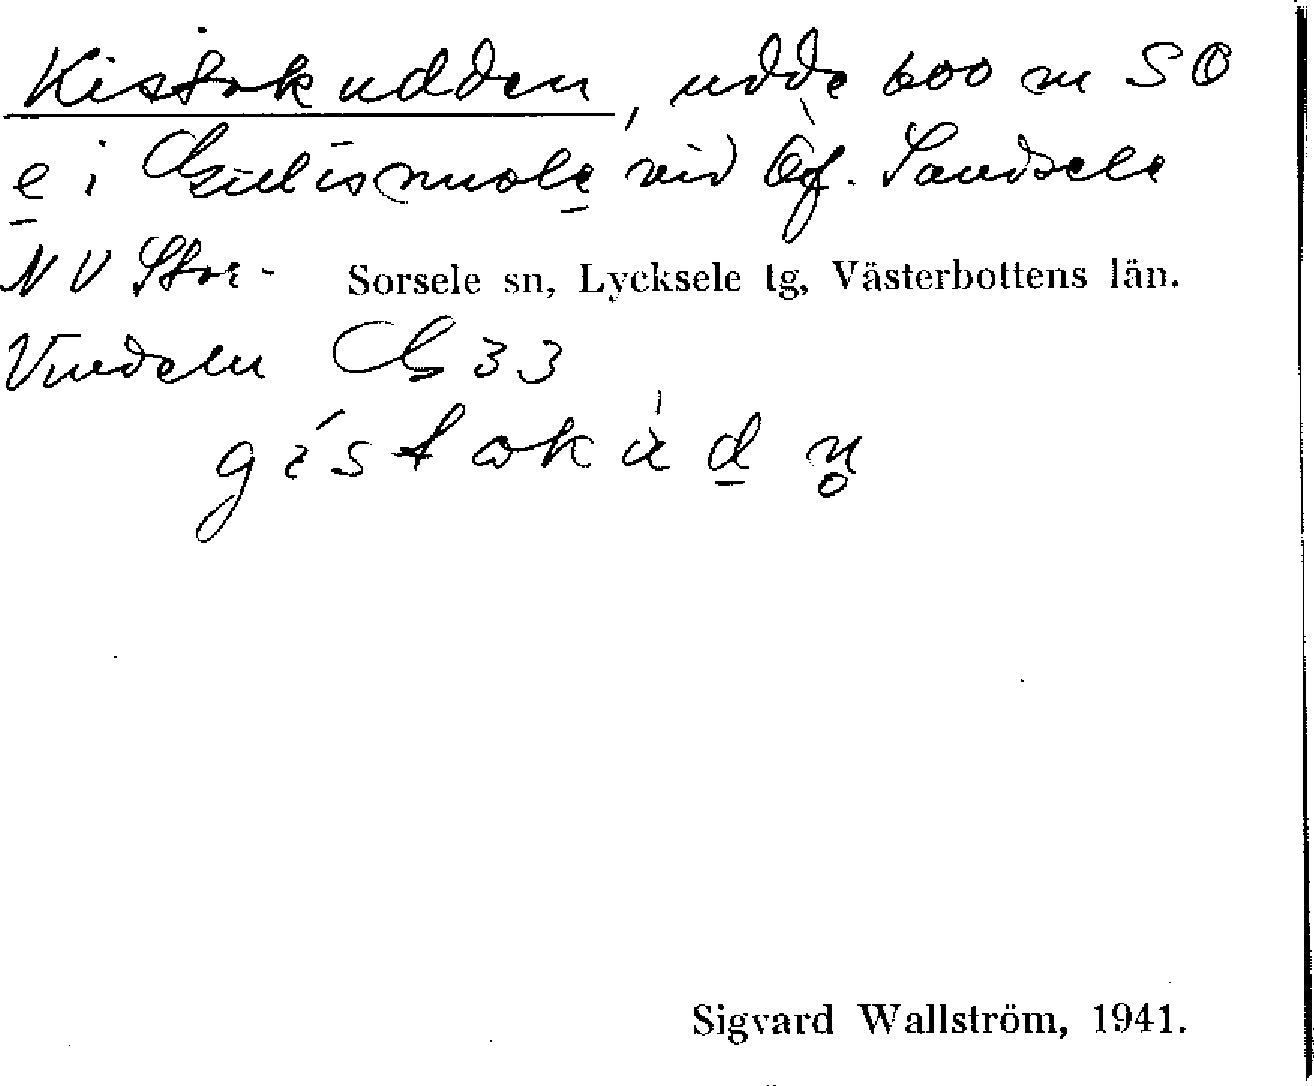 Kistokudden, udde 600 m SO
e i vid Öf. Sandsele
NV Stor-
Sorsele sn, Lycksele tg, Västerbottens län.
Vindeln G 33
Sigvard Wallström, 1941.